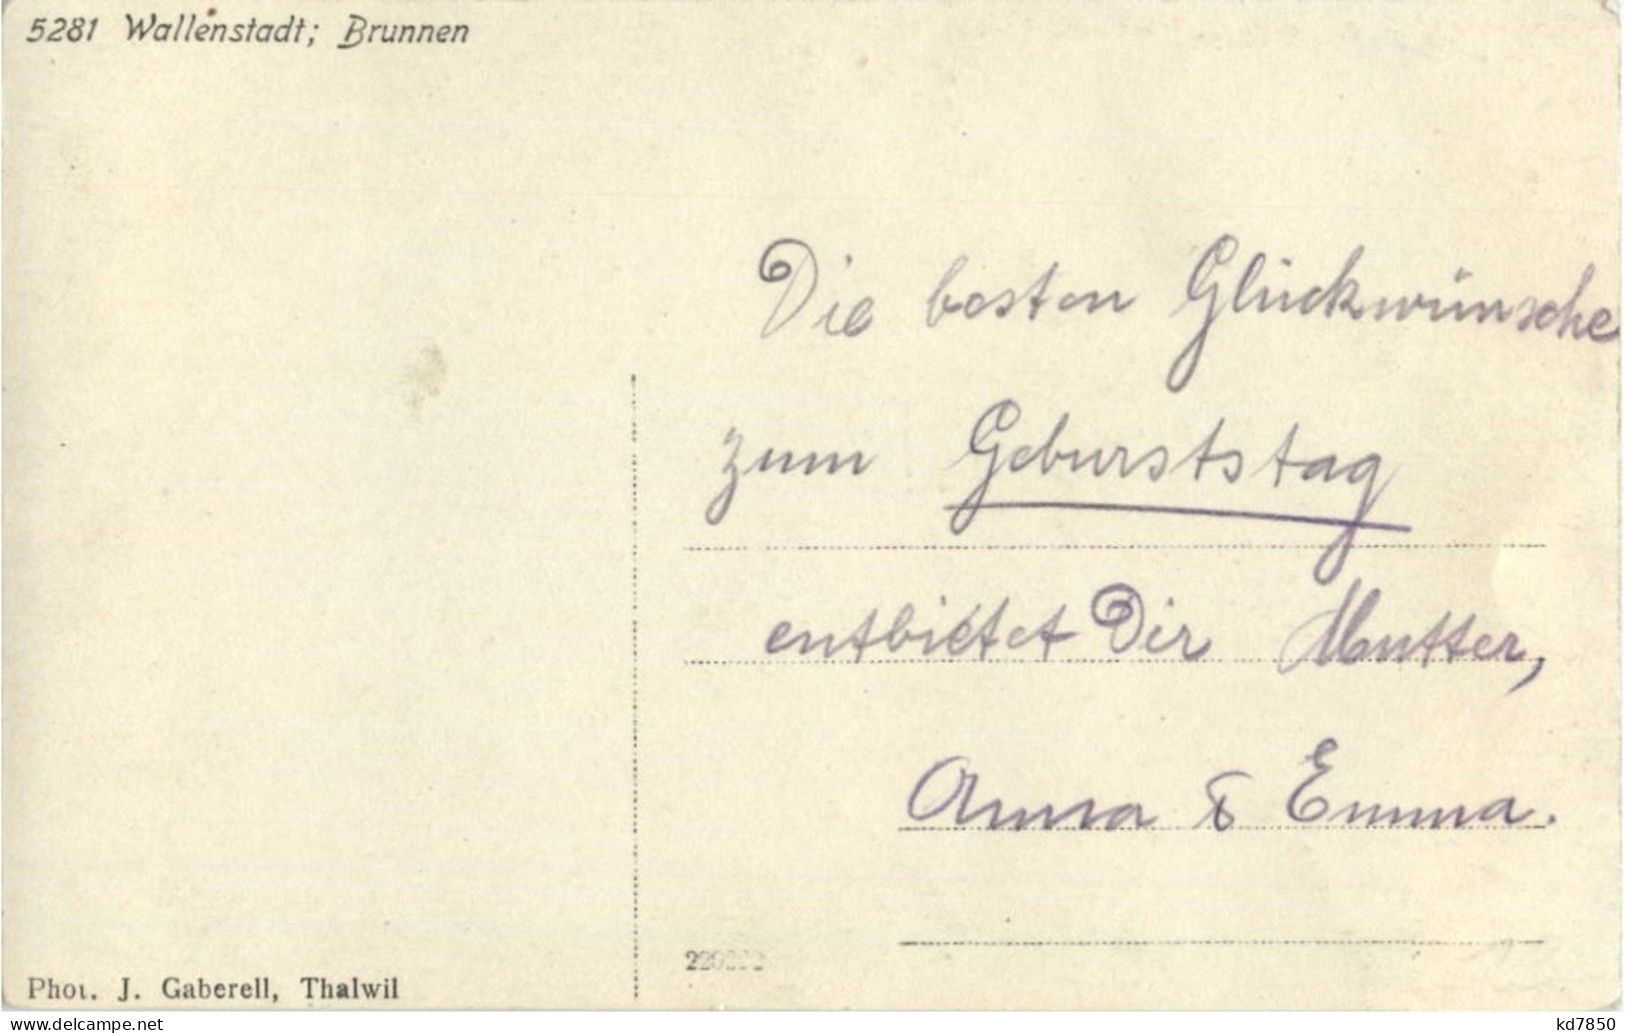 5281 Wallenstadt; Brunnen
Die besten Glückwünsche
zum Geburststag
entbietet Dir Mutter,
Anna & Emma.
Phot. J. Gaberell, Thalwil
delcampe.net
kd7850